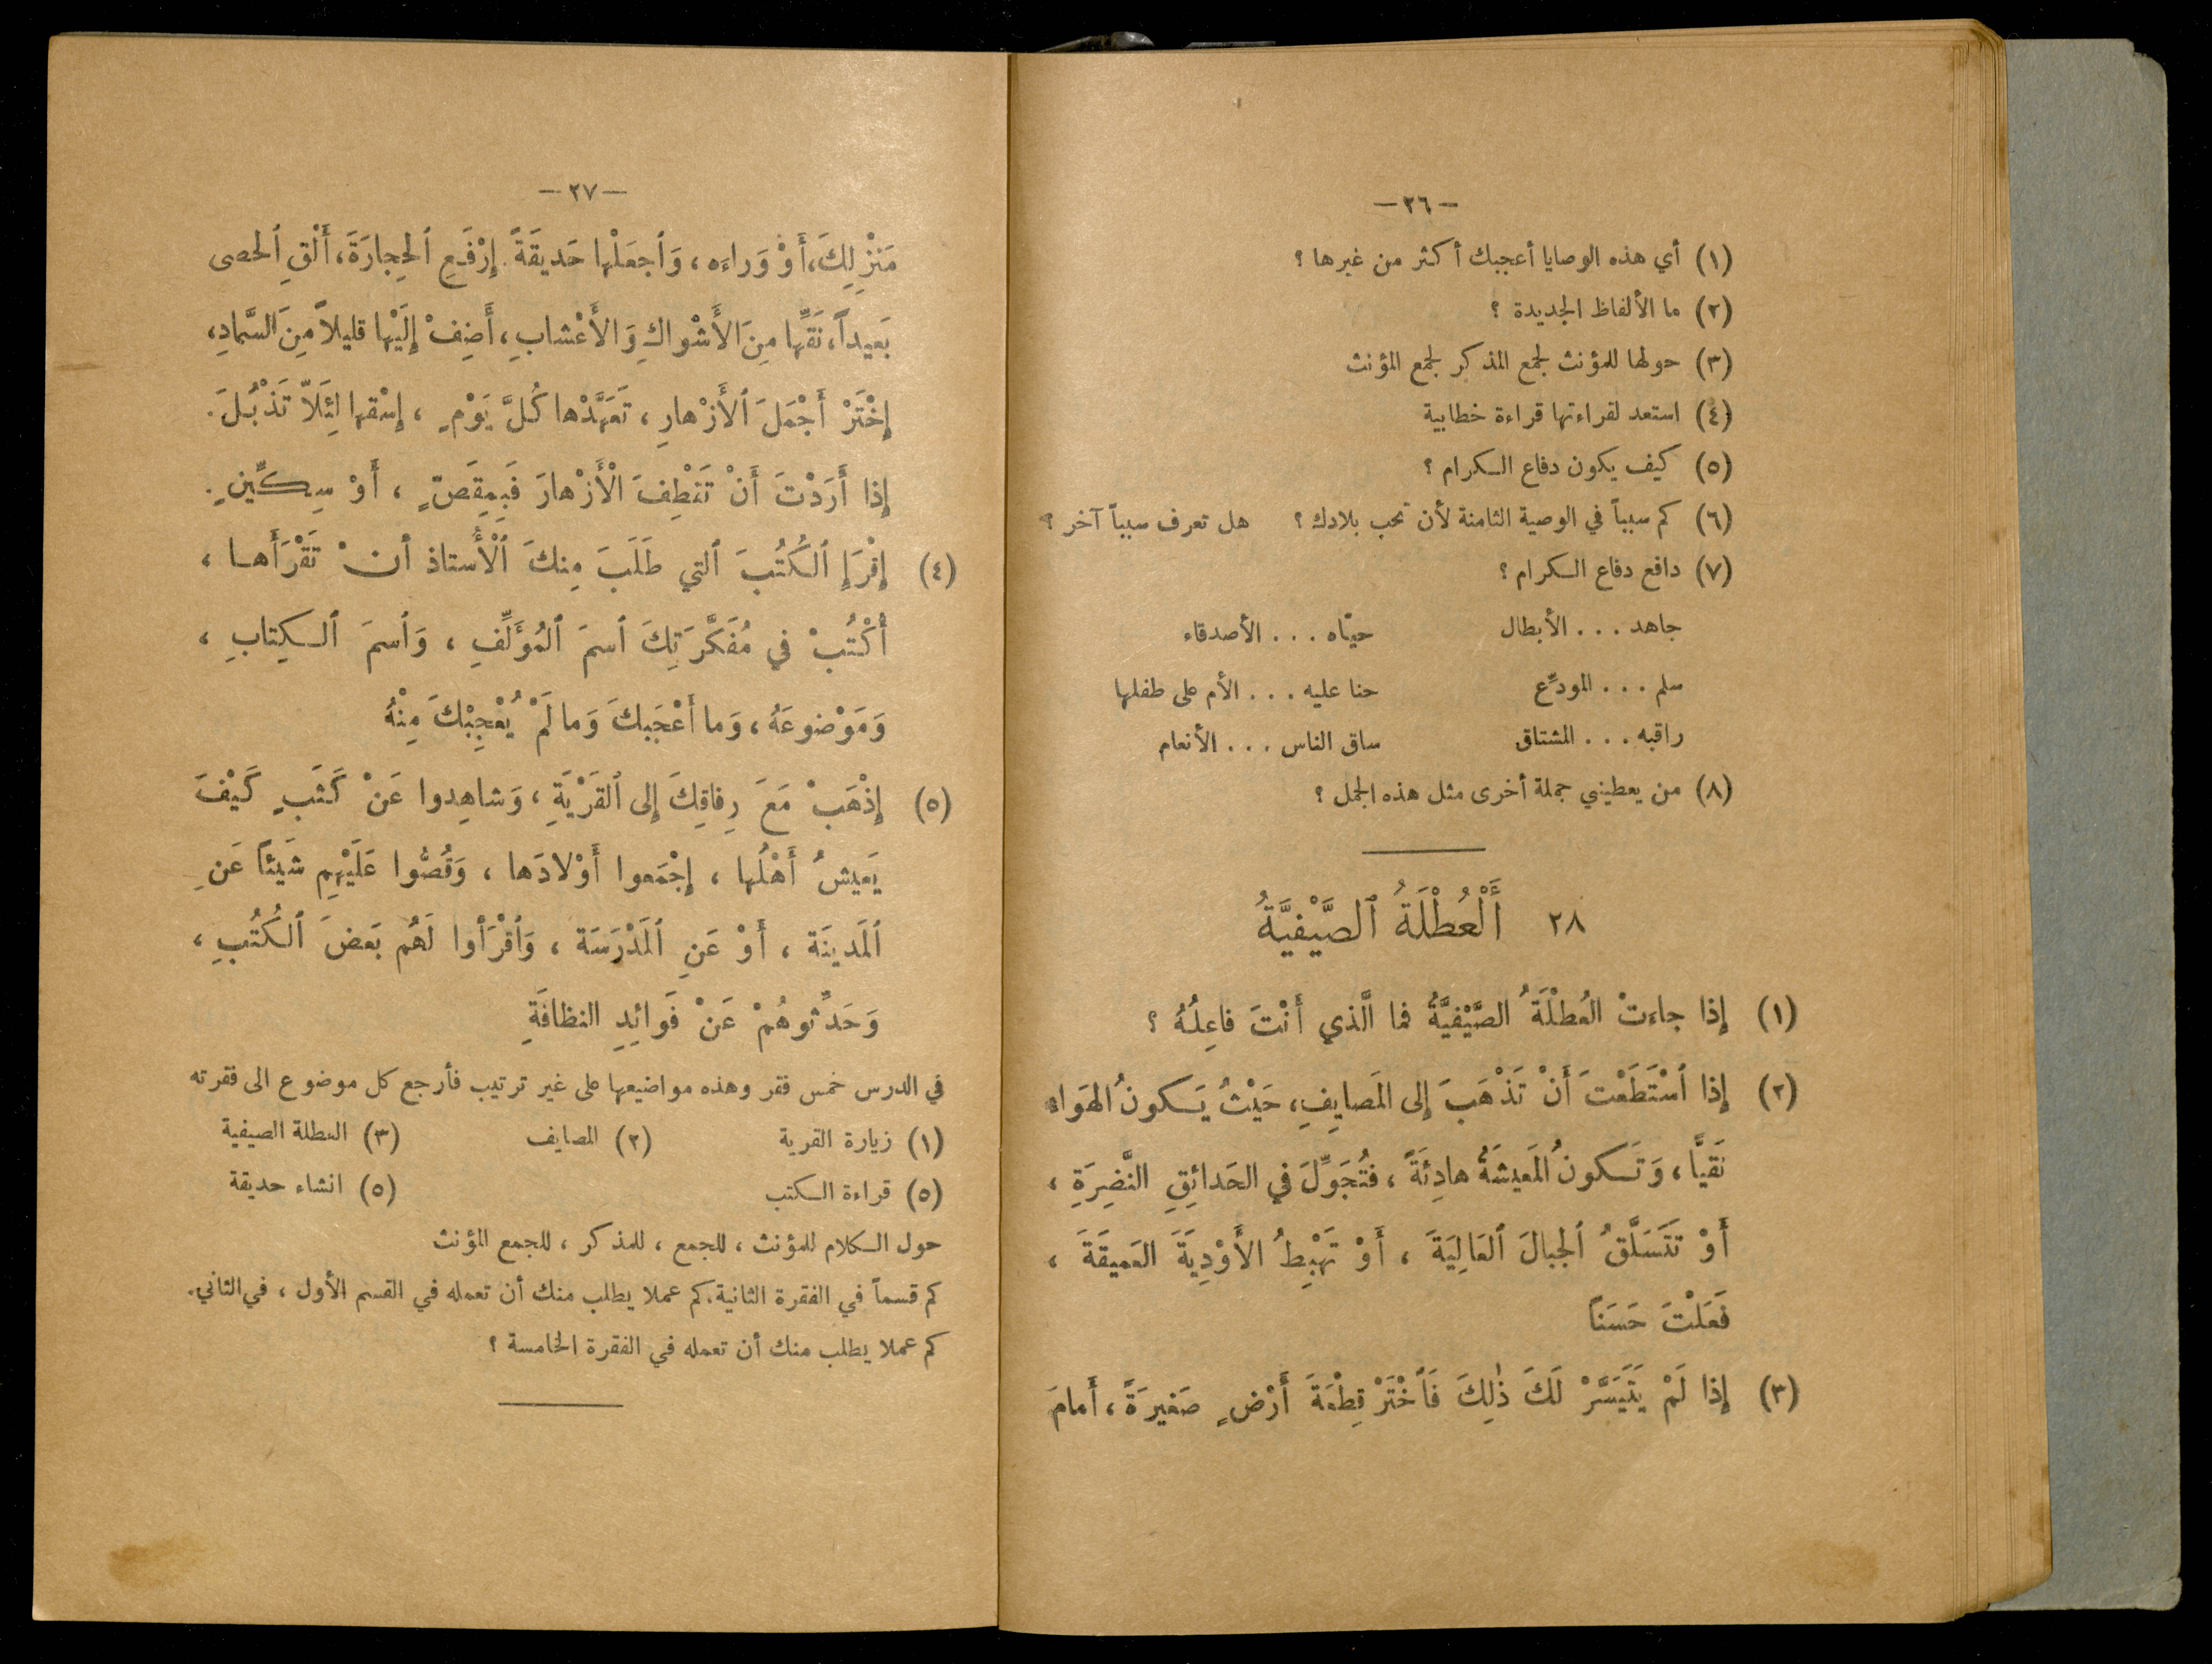 — ٢٦ —
(١) أي هذه الوصايا أعجبك أكثر من غيرها ؟
(٢) ما الألفاظ الجديدة ؟
(٣) حولها للمؤنث لجمع المذكر لجمع المؤنث
(٤) استعد لقراءتها قراءة خطابية
(٥) كيف يكون دفاع الكرام ؟
(٦) كم سبباً في الوصية الثامنة لأن تحب بلادك ؟ هل تعرف سبباً آخر ؟
(٧) دافع دفاع الكرام ؟
جاهد . . . الأبطال حيّاه . . . الأصدقاء
سلم . . . المودِّع حنا عليه . . . الأم على طفلها
راقبه . . . المشتاق ساق الناس . . . الأنعام
(٨) من يعطيني جملة أخرى مثل هذه الجمل ؟
٢٨ أَلْعُطْلَةُ ٱلصَّيْفِيَّةُ
(١) إِذا جاءَتْ العُطْلَةُ الصَّيْفِيَّةُ فما الَّذي أَنْتَ فاعِلُهُ ؟
(٢) إِذا ٱسْتَطَعْتَ أَنْ تَذْهَبَ إِلى المَصايِفِ، حَيْثُ يَكونُ الهَواء
نَقيًّا، وَتَكونُ المَعيشَةُ هادِئَةً، فتُجَوِّلَ في الحَدائِقِ النَّضِرَةِ ،
أَوْ تَتَسَلَّقُ ٱلجِبالَ ٱلعَالِيَةَ ، أَوْ تَهْبِطُ الأَوْدِيَةَ العَميقَةَ ،
فَعَلْتَ حَسَناً
(٣) إِذا لَمْ يَتَيَسَّرْ لَكَ ذٰلِكَ فَٱخْتَرْ قِطْعَةَ أَرْضٍ صَغيرَةً، أَمامَ
— ٢٧ —
مَنْزِلِكَ، أَوْ وَراءَه ، وَٱجعَلْها حَديقَةً. إِرْفَعِ ٱلحِجارَةَ، أَلْقِ ٱلحصى
بَعيداً، نَقِّها مِنَ الأَشْواكِ وَالأَعْشابِ، أَضِفْ إِلَيْها قليلاً مِنَ السَّمادِ،
إِخْتَرْ أَجْمَلَ ٱلأَزْهارِ ، تَعَهَّدْها كُلَّ يَوْمٍ ، إِسْقها لِئَلاّ تَذْبُلَ .
إِذا أَرَدْتَ أَنْ تَقْطِفَ الْأَزْهارَ فَبِمِقَصٍّ ، أَوْ سِكِّينٍ .
(٤) إِقْرَإِ ٱلكُتُبَ ٱلتي طَلَبَ مِنكَ ٱلْأُستاذ أنْ تَقْرَأَها ،
أُكْتُبْ في مُفَكَّرَتِكَ ٱسمَ ٱلمُؤَلِّفِ ، وَٱسمَ ٱلكِتابِ ،
وَمَوْضوعَهُ ، وَما أَعْجَبكَ وَما لَمْ يُعْجِبْكَ مِنْهُ
(٥) إِذْهَبْ مَعَ رِفاقِكَ إِلى ٱلقَرْيَةِ ، وَشاهِدوا عَنْ كَثَبٍ كَيْفَ
يَعيشُ أَهْلُها ، إِجْمَعوا أَوْلادَها ، وَقُصُّوا عَلَيْهِم شَيئاً عَنِ
ٱلمَدينَة ، أَوْ عَنِ ٱلمَدْرَسَة ، وَٱقْرَأوا لَهُم بَعضَ ٱلكُتُبِ ،
وَحَدِّثوهُمْ عَنْ فَوائِدِ النظافَةِ
في الدرس خمس فقر وهذه مواضيعها على غير ترتيب فأرجع كل موضوع الى فقرته
(١) زيارة القرية (٢) المصايف (٣) العطلة الصيفية
(٥) قراءة الكتب (٥) انشاء حديقة
حول الكلام للمؤنث ، للجمع ، للمذكر ، للجمع المؤنث
كم قسماً في الفقرة الثانية. كم عملا يطلب منك أن تعمله في القسم الأول ، في الثاني.
كم عملا يطلب منك أن تعمله في الفقرة الخامسة ؟